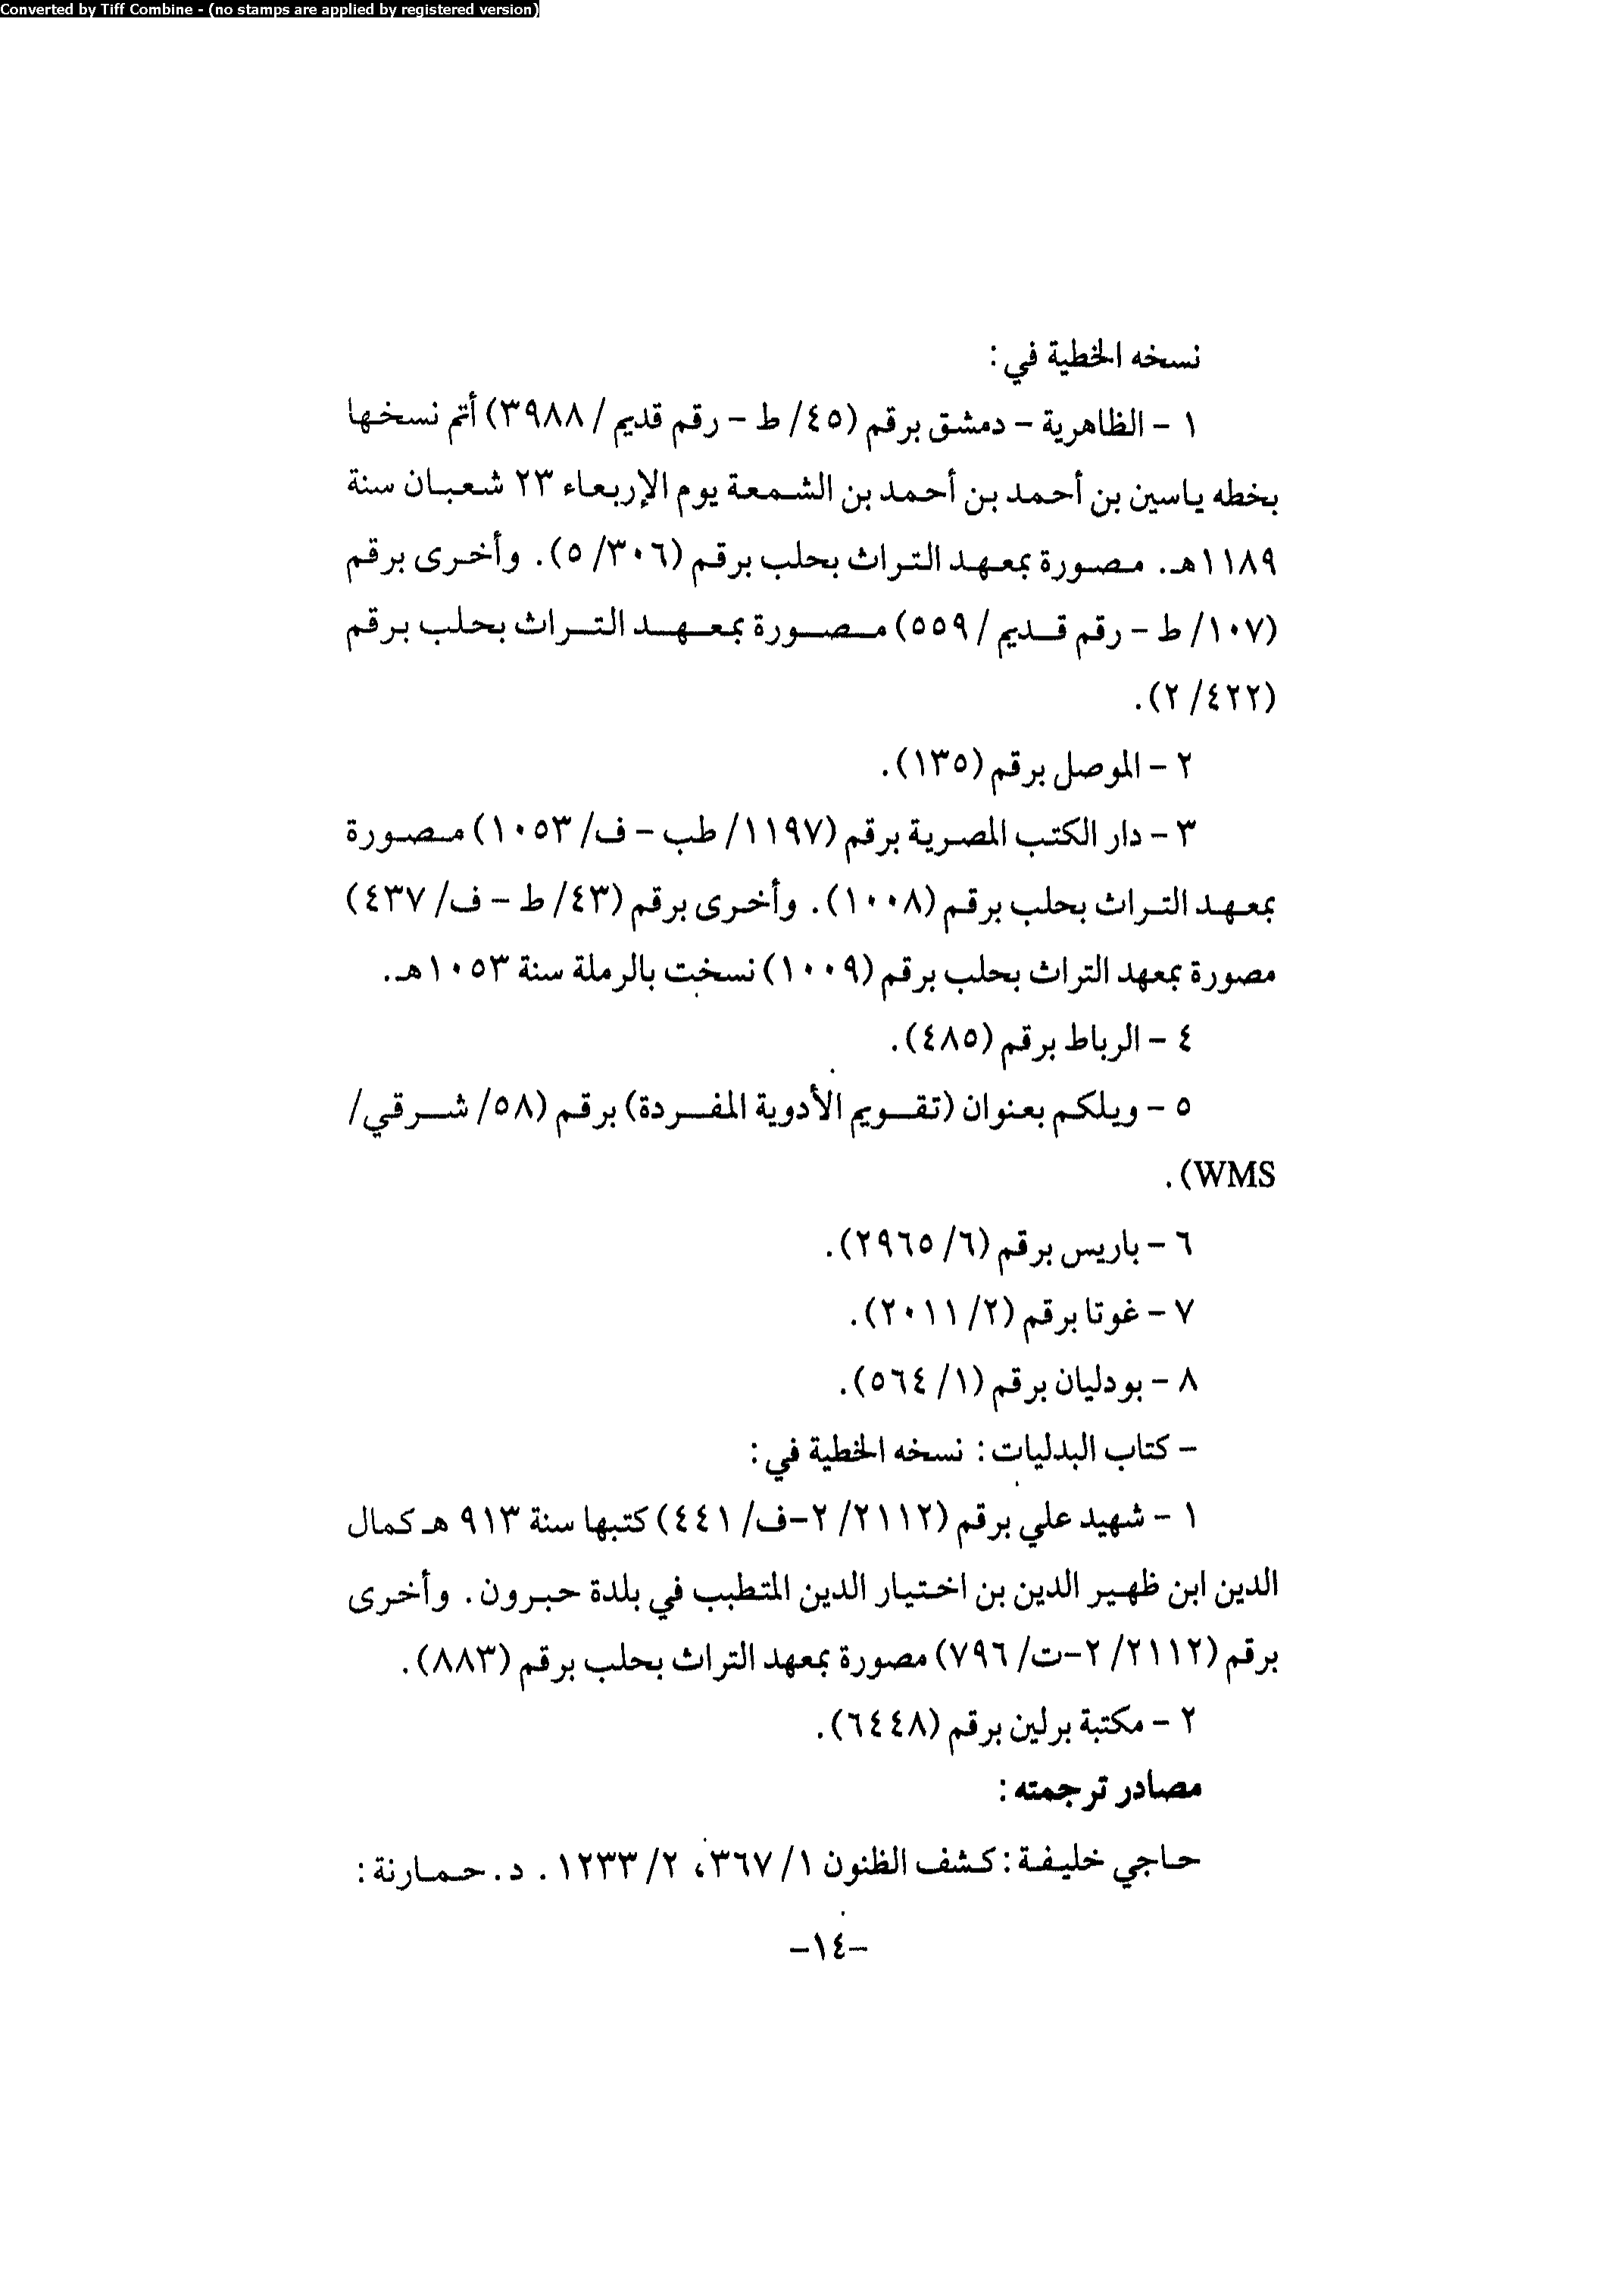 Converted by Tiff Combine - (no stamps are applied by registered version)
نسخه الخطية في:
١ - الظاهرية - دمشق برقم (٤٥/ ط - رقم قديم / ٣٩٨٨) أتم نسخها
بخطه ياسين بن أحمد بن أحمد بن الشمعة يوم الإربعاء ٢٣ شعبان سنة
١١٨٩هـ. مصورة بمعهد التراث بحلب برقم (٣٠٦/ ٥). وأخرى برقم
(١٠٧/ ط - رقم قديم / ٥٥٩) مصورة بمعهد التراث بحلب برقم
(٤٢٢/ ٢).
٢ - الموصل برقم (١٣٥).
٣ - دار الكتب المصرية برقم (١١٩٧/ طب - ف/ ١٠٥٣) مصورة
بمعهد التراث بحلب برقم (١٠٠٨). وأخرى برقم (٤٣/ ط - ف/ ٤٣٧)
مصورة بمعهد التراث بحلب برقم (١٠٠٩) نسخت بالرملة سنة ١٠٥٣هـ.
٤ - الرباط برقم (٤٨٥).
٥ - ويلكم بعنوان (تقويم الأدوية المفردة) برقم (٥٨/ شرقي/
WMS).
٦ - باريس برقم (٦/ ٢٩٦٥).
٧ - غوتا برقم (٢/ ٢٠١١).
٨ - بودليان برقم (١/ ٥٦٤).
- كتاب البدليات: نسخه الخطية في:
١ - شهيد علي برقم (٢١١٢/ ٢-ف/ ٤٤١) كتبها سنة ٩١٣ هـ كمال
الدين ابن ظهير الدين بن اختيار الدين المتطبب في بلدة حبرون. وأخرى
برقم (٢١١٢/ ٢-ت/ ٧٩٦) مصورة بمعهد التراث بحلب برقم (٨٨٣).
٢ - مكتبة برلين برقم (٦٤٤٨).
مصادر ترجمته:
حاجي خليفة: كشف الظنون ١/ ٣٦٧، ٢/ ١٢٣٣. د. حمارنة:
-١٤-